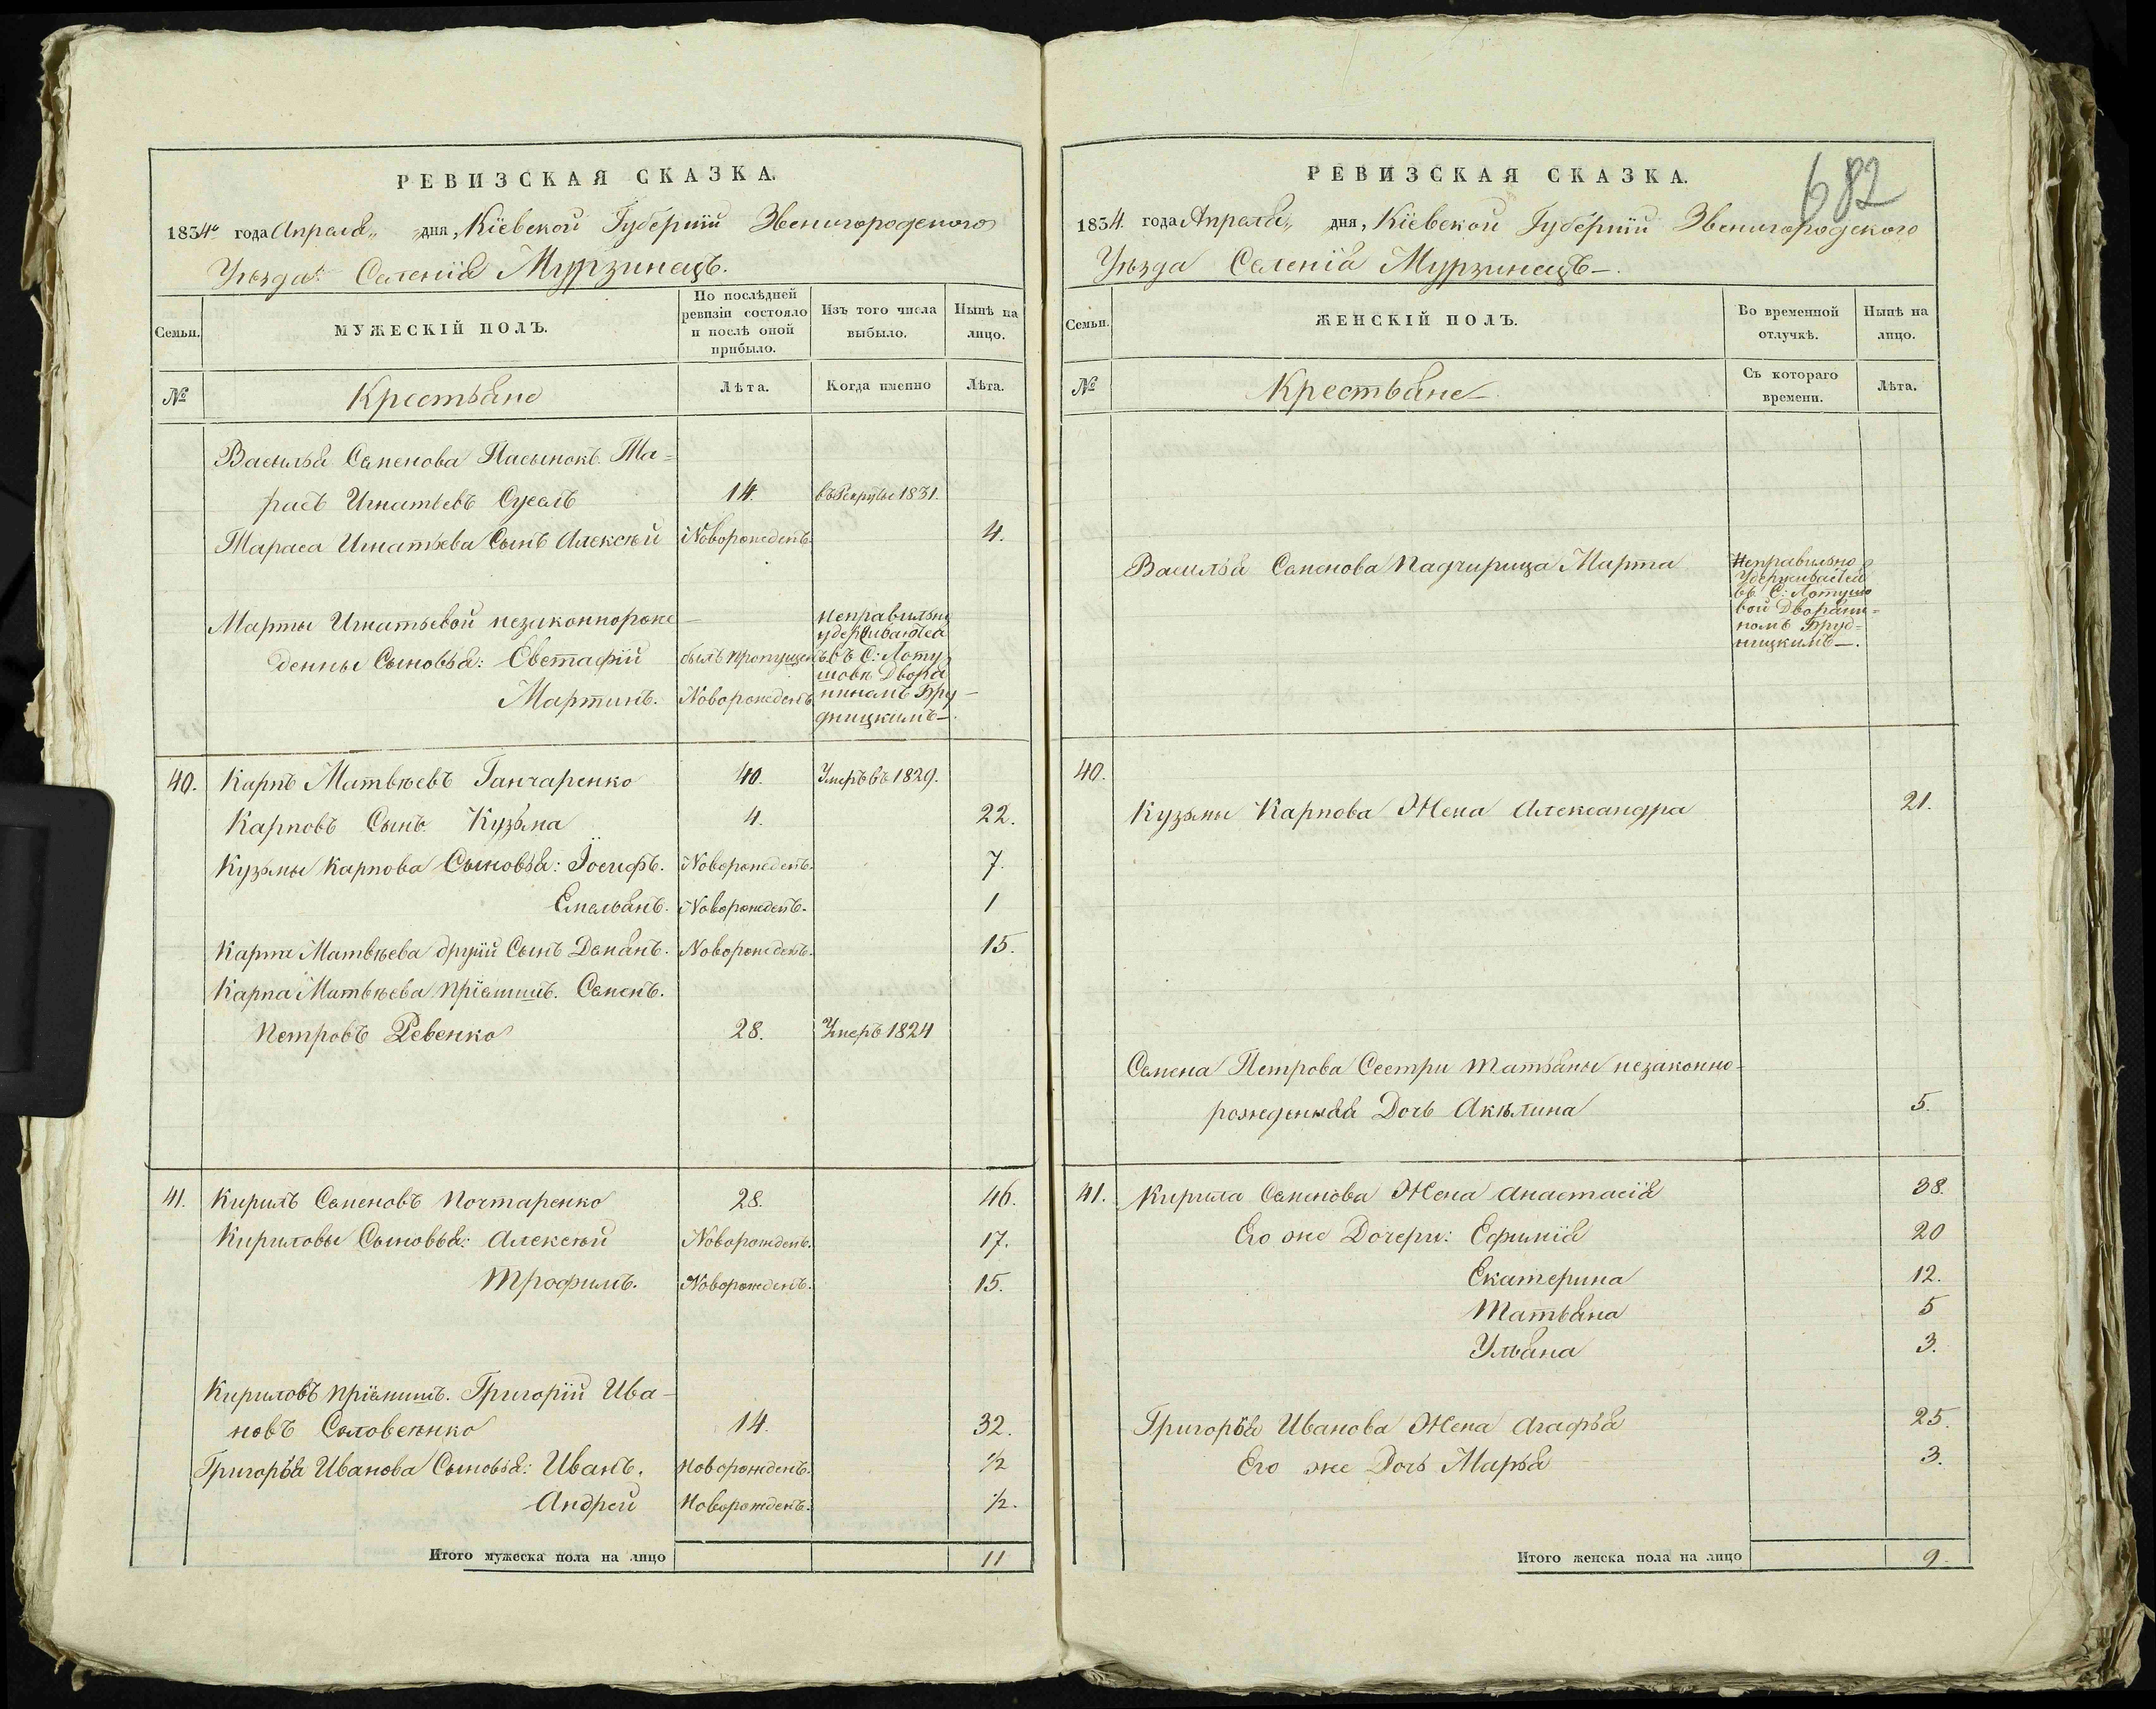 РЕВИЗСКАЯ СКАЗКА.
1834го года Апреля „ „ дня, Кіевской Губерніи Звенигородского
Уѣзда: Селенія Мурзинецъ.
Семьи.
МУЖЕСКІЙ ПОЛЪ.
По послѣдней
ревизіи состояло
и послѣ оной
прибыло.
Изъ того числа
выбыло.
Нынѣ на
лицо.
№
Крестьяне
Лѣта.
Когда именно
Лѣта.
Василья Семенова Пасынокъ Та=
расъ Игнатьевъ 14. въ Рекруты 1831.
Тараса Игнатьева Сынъ Алексѣй Новорожденъ. 4.
Марты Игнатьевой незаконнорож
денны Сыновья: Евстафій былъ пропущенъ
Мартинъ. Новорожденъ
неправильно
удерживается
въ С: Лоту
шовѣ Дворя
ниномъ Бру
дницкимъ—.
40. Карпъ Матвѣевъ Ганчаренко 40. Умеръ въ 1829.
Карповъ Сынъ Кузьма 4. 22.
Кузьмы Карпова Сыновья: Іосифъ. Новорожденъ. 7.
Емельянъ. Новорожденъ. 1
Карпа Матвѣева другій Сынъ Демянъ. Новорожденъ. 15.
Карпа Матвѣева пріемишъ. Семенъ.
Петровъ Ревенко 28. Умеръ 1824
41. Кирилъ Семеновъ Почтаренко 28. 46.
Кириловы Сыновья: Алексѣй Новорожденъ. 17.
Трофимъ. Новорожденъ. 15.
Кириловъ пріемишъ. Григорій Ива-
новъ Соловеенко 14. 32.
Григорья Иванова Сыновья: Иванъ. Новорожденъ. 1/2
Андрей Новорожденъ. 1/2.
Итого мужеска пола на лицо 11
682
РЕВИЗСКАЯ СКАЗКА.
1834. года Апреля „ дня, Кіевской Губерніи Звенигородского
Уѣзда Селенія Мурзинецъ—.
Семьи.
ЖЕНСКІЙ ПОЛЪ.
Во временной
отлучкѣ.
Нынѣ на
лицо.
№
Крестьяне
Съ котораго
времени.
Лѣта.
Василья Семенова Падчирица Марта
Неправильно
Удерживается
въ С: Лотушо
вой Дворяни=
номъ Бруд=
ницкимъ—.
40.
Кузьмы Карпова Жена Александра 21.
Семена Петрова Сестри Татьяны незаконно-
рожденная Дочь Акѣлина 5.
41. Кирила Семенова Жена Анастасія 38.
Его же Дочери: Ефимія 20
Екатерина 12.
Татьяна 5
Ульяна 3.
Григорья Иванова Жена Агафья 25.
Его же Дочь Марья 3.
Итого женска пола на лицо 9.